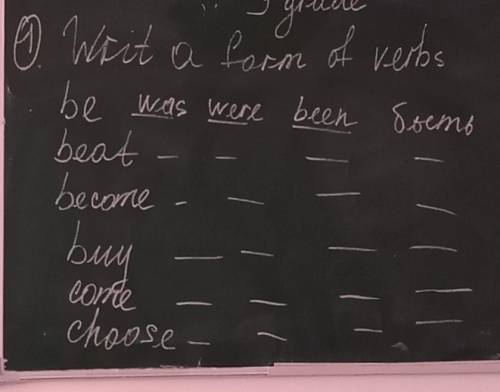 5 grade
① Writ a form of verbs
be was were been быть
beat – – – –
become – – – –
buy – – – –
come – – – –
choose – – – –